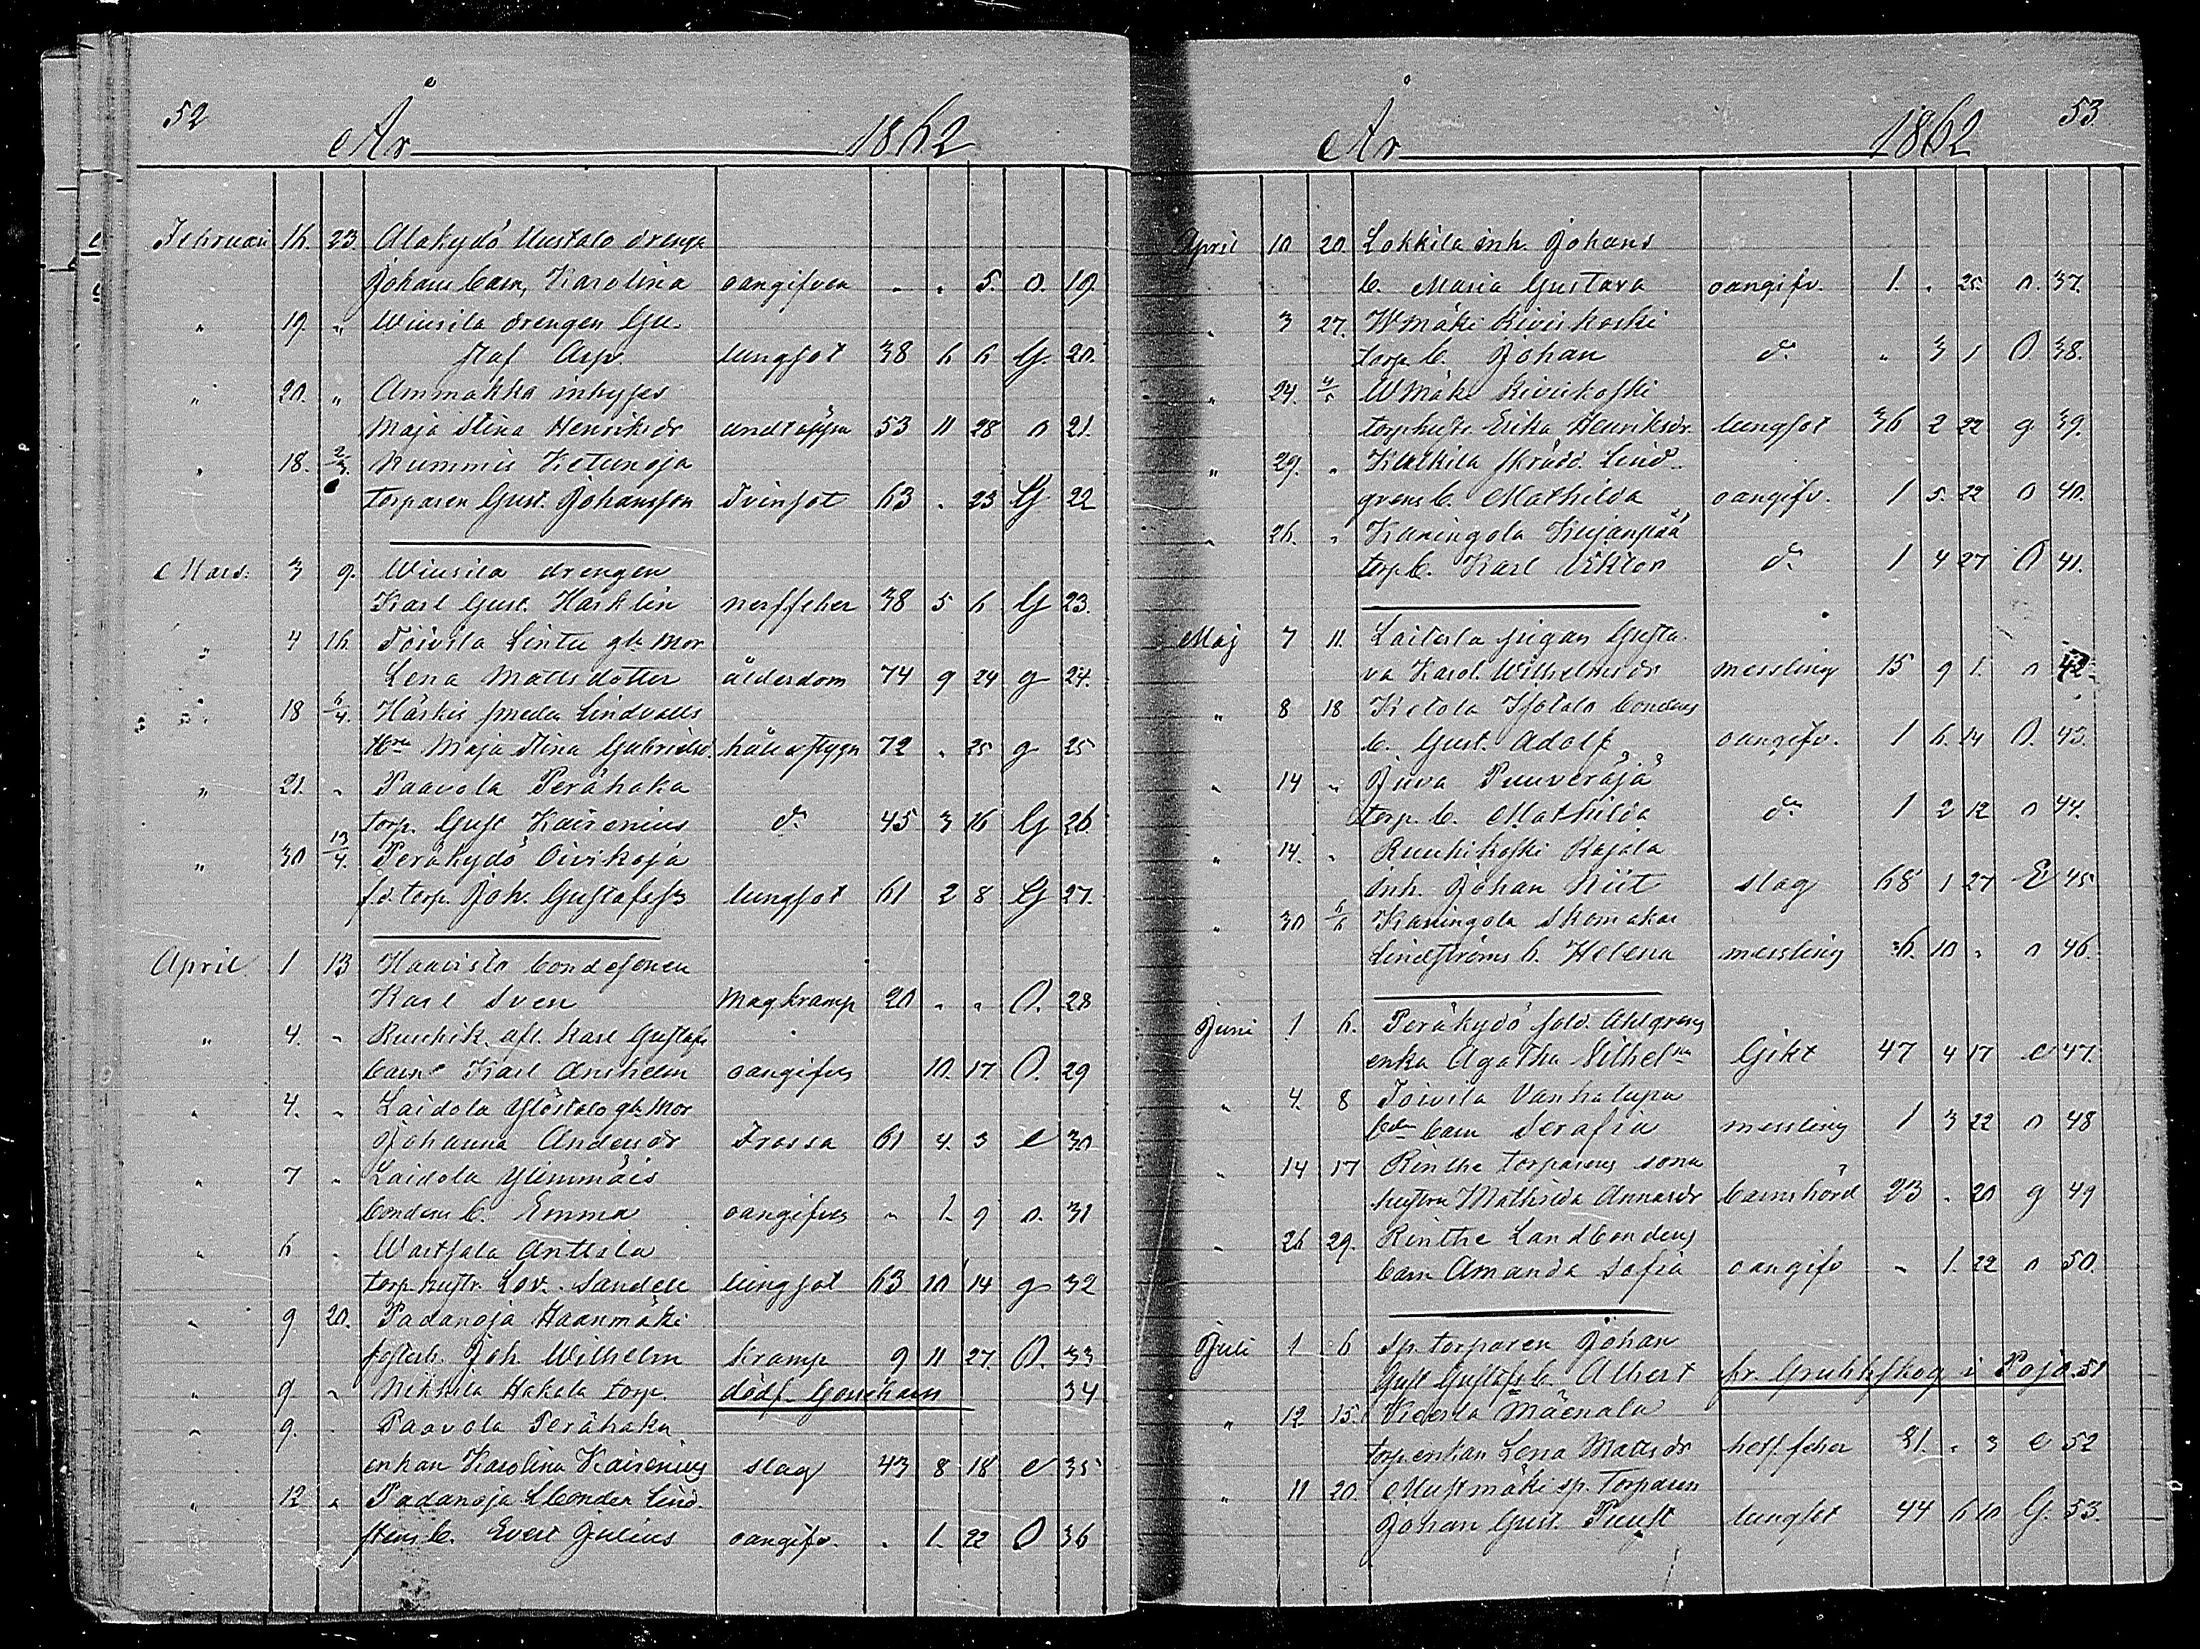 52
År 1862
Februari 16. 23 Alakydö Uustalo drengs
Johans barn, Karolina oangifven " " 5. O. 19.
" 19. " Wiusila drengen Gu-
staf Asp. lungsot 38 6 6 G. 20.
" 20. " Ammakka inhyses
Maja Stina Henriksdr andtäppa 53 11 28 o 21.
" 18. 2/3. Kummis Ketunoja
torparen Gust. Johansson Tvinsot 63 . 23 G 22
Mars. 3 9. Wiusila drengen
Karl Gust. Harklin nerffeber 38 5 6 G 23.
" 4 16. Toivila Lintu gb. Mor
Lena Mattsdotter ålderdom 74 9 24 g 24.
" 18 6/4. Härkis smeden Lindvalls
Maja Stina håll o stygn 72 . 25 g 25
21. " Paavola Perähaka
torp. Gust Kairenius do 45 3 16 G 26.
" 30 13/4. Peräkydö Oivikoja
f.d. torp. Joh. Gustafss lungsot 61 2 8 G 27.
April 1 13 Haavisto bondesonen
Karl Sven Magkramp 20 " " O. 28
" 4. " Ruuhik. afl. Karl Gustafs
barn Karl Anshelm oangifves 10. 17. O. 29
" 4. " Laidola Ylöstalo gb. Mor
Johanna Andersdr Frossa 61 4. 3 e 30
" 7 " Laidola Ylimmäis
bondens b. Emma oangifves " 1. 9 o. 31
" 6 " Wartsala Anttila
torp. hustr. Lov. Sandell lungsot 63 10 14 g 32
" 9 20. Padanoja Haanmäki
fosterb. Joh. Wilhelm kramp 9 11 27. O. 33
" 9 " Nikkila Hakala torp. dödf. Gossebarn 34
" 9. Paavola Perähaka
enkan Karolina Kairenius slag 43 8 18 e 35
" 12. " Padanoja Lbonden Lind-
stens b. Evert Julius oangifv. " 1. 22 O 36
53
År 1862
April 10 20. Lokkila inh. Johans
b. Maria Gustava oangifv. 1. " 25. o. 37.
" 3 27. Wmäki Kivikoski
torp. b. Johan do " 3 1 O. 38.
" 24. Wmäki Kivikoski
torp. hustr. Erika Henriksdr. lungsot 36 2 22 g 39.
" 29. " Kulkila skrädd. Lind-
grens b. Mathilda oangifv. 1 5. 22 o 40.
" 26. " Kaningola Kujanpää
torp. b. Karl Viktor do 1 4 27 O 41.
Maj 7 11. Laitila pigan Gusta-
va Karol. Wilhelmsdr messling 15 9 1. o 42.
" 8 18 Ketola Isotalo bondens
b. Gust. Adolf oangifv. 1 6. 14 O. 43.
" 14 " Juva Puuveräjä
torp. b. Mathilda do 1 2 12 o 44.
" 14. " Ruuhikoski Rajala
inh. Johan Kiit slag 68 1 27 E 45
" 30 Kaningola Skomakar
Lindströms b. Helena messling 6. 10 " o 46.
Juni 1 6. Peräkydö sold. Ahlgrens
enka Agatha Vilhelma Gikt 47 4 17 e 47.
" 4. 8 Toivila Vanhatupa
barn Serafia messling 1 3 22 o 48
" 14 17 Rinthe torparens sons
hustru Mathilda Annasdr barnsbörd 23 " 20 g 49
" 26 29. Rinthe Landbondens
barn Amanda Sofia oangifv " 1. 22 o 50.
Juli 1 6 Sp. torparen Johan
Gust Gustafss b. Albert i Pojo. 51
" 12 15. Mäenala
torp. enkan Lena Mattsdr hetsfeber 81. " 3 e 52
" 11 20. Mustmäki sp. torparen
Johan Gust. Puust lungsot 44 6 10 G. 53.